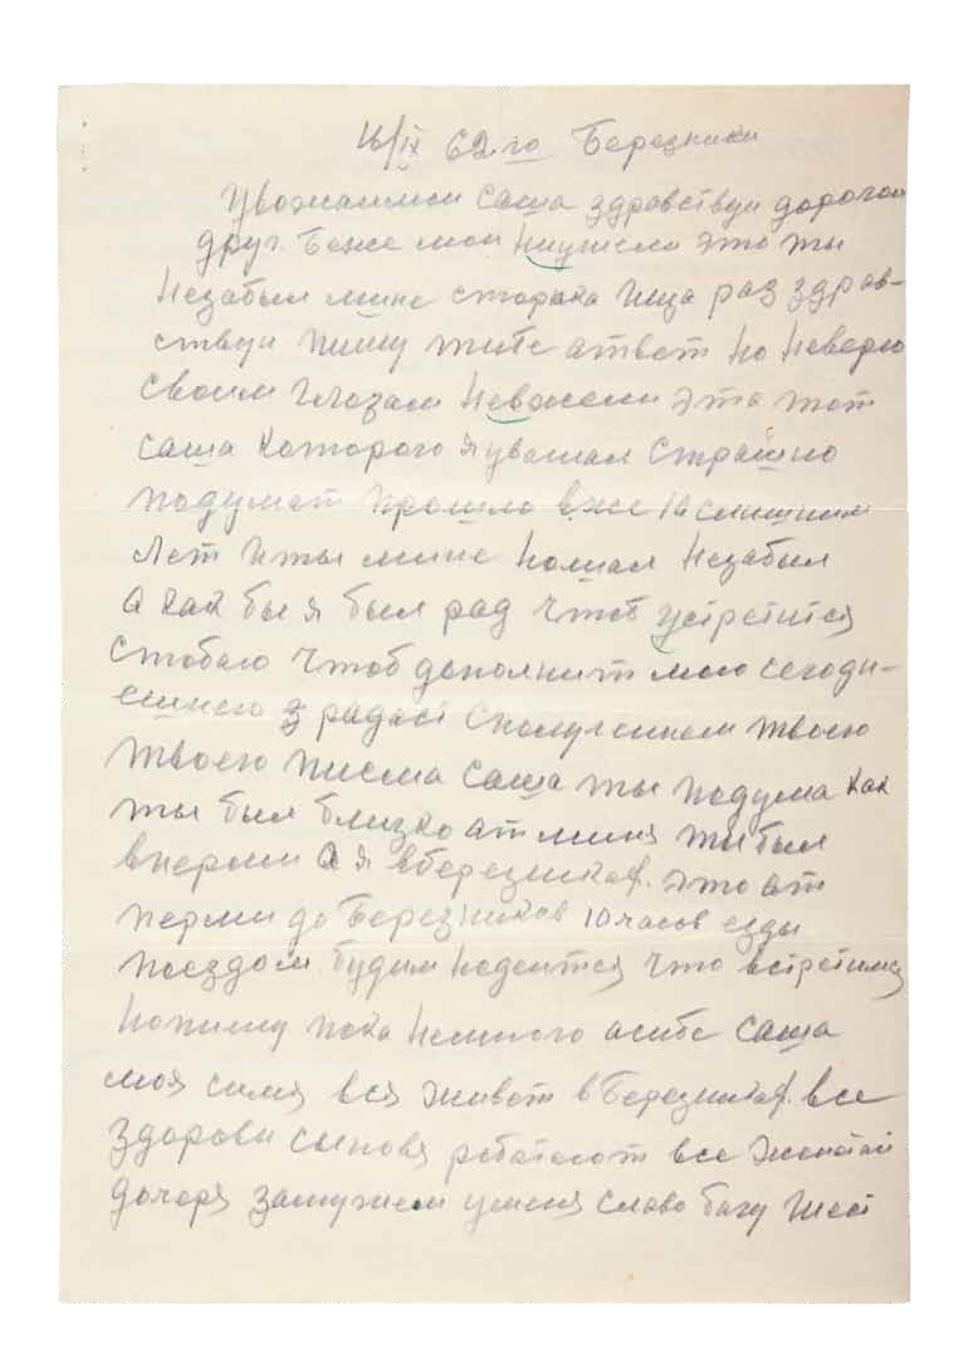 16/IX 62.го Березники
Уважаимои Саша здравствуи дорогои
друг. Боже мои Ниужело это ты
Незабыл мине старика Ища раз здрав-
ствуи пишу тибе ответ Но Неверю
своим глазам Невжели эта тот
Саша Которого я уважал Страшно
подумат прошло вже лишним
лет и ты мине Незабыл
а как бы я был рад чтоб устретитея
стобою чтоб дополнит мою сегодн-
ешнею радост сполучением твоею
твоего писма Саша ты подума как
ты был близко ат миня ты был
вперми а я вберезниках. это ат
перми до Березников 10 часов езды
поездом будим Надеитея что встретимся
Напишу пока Немного асибе Саша
моя симя вся живет в Березниках. все
здорови сыновя работают все женатаи
дочеря замужем уменя слава богу шест